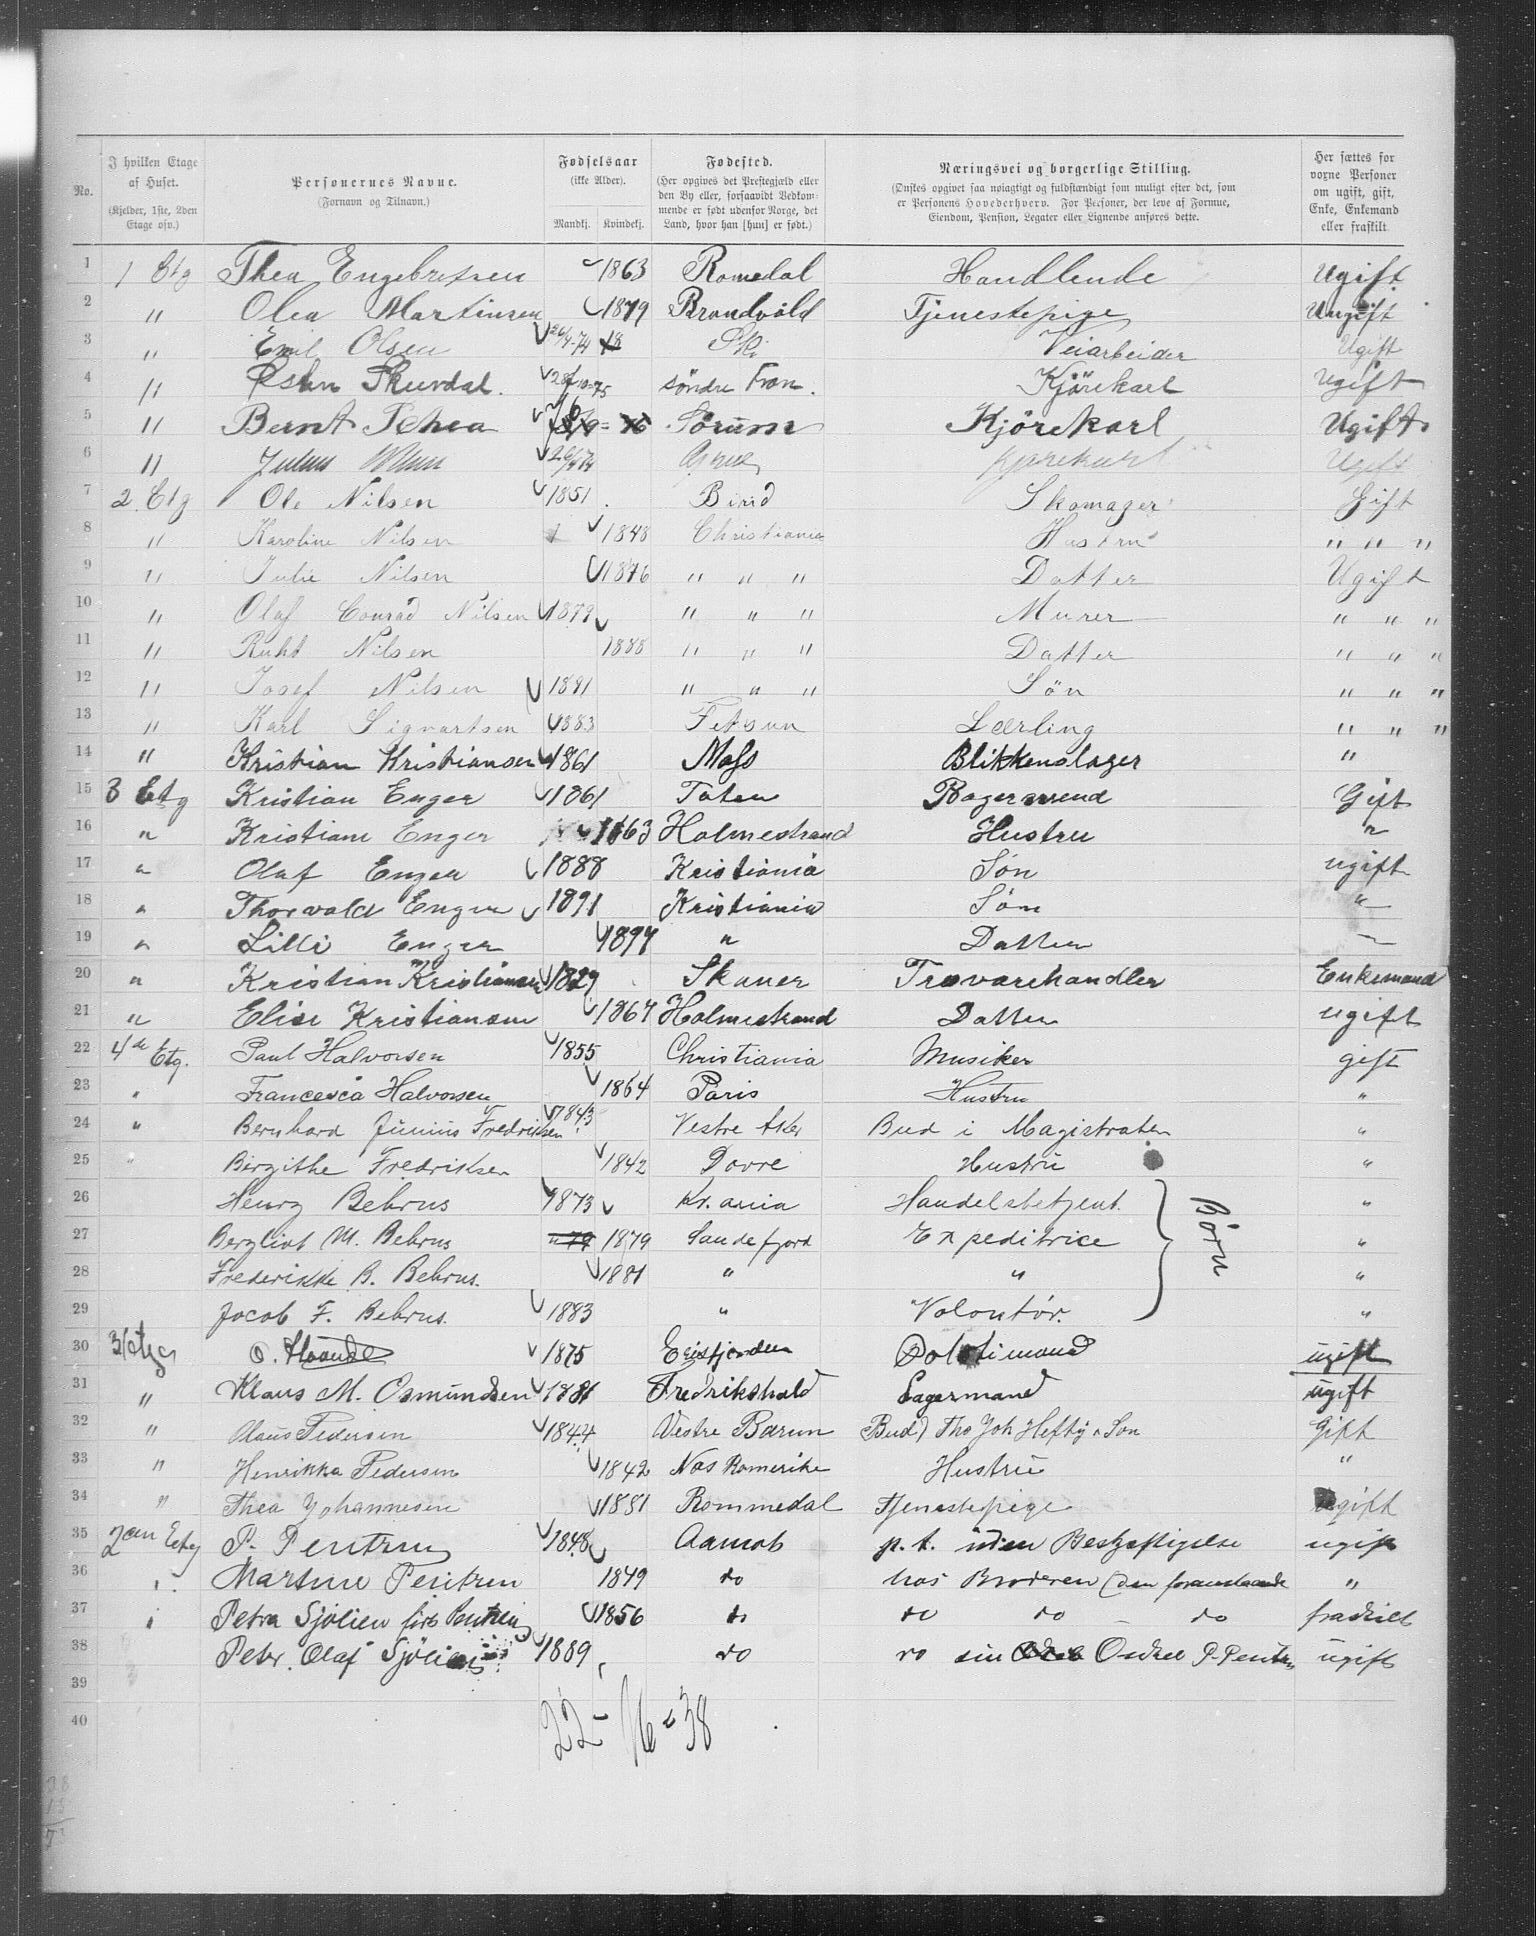 No.	I hvilken Etage af Huset. (Kjelder, 1ste, 2den Etage osv.)	Personernes Navne. (Fornavn og Tilnavn.)	Fødselsaar (ikke Alder). Mandkj. Kvindekj.	Fødested. (Her opgives det Prestegjæld eller den By eller, forsaavidt Vedkommende er født udenfor Norge, det Land, hvor han [hun] er født.)	Næringsvei og borgerlige Stilling. (Ønskes opgivet saa nøiagtigt og fuldstændigt som muligt efter det, som er Personens Hovederhverv. For Personer, der leve af Formue, Eiendom, Pension, Legater eller Lignende anføres dette.	Her sættes for voxne Personer om ugift, gift, Enke, Enkemand eller fraskilt
1	1 Etg	Thea Engebretsen	1863	Romedal	Handlende	Ugift
2	"	Olea Martinsen	1879	Brandvold	Tjenestepige	Ungift
3	"	Emil Olsen	26/4-74	Ski	Veiarbeider	Ugift
4	"	Skurdal.	søndre Fron.	Kjørekarl	ugift
5	"	Bernt	Sørum	Kjörekarl	Ugift
6	"	Julius	Grue	Kjørekarl	Ugift
7	2 Etg	Ole Nilsen	1851	Birid	Skomager	Gift
8	"	Karoline Nilsen	1848	Christiania	Hustru	" " "
9	"	Julie Nilsen	1876	" " "	Datter	Ugift
10	"	Olaf Conrad Nilsen	1879	" " "	Murer	" " "
11	"	Ruht Nilsen	1888	" " "	Datter	" " "
12	"	Josef Nilsen	1891	" " "	Søn	" " "
13	"	Karl Sigvartsen	1883	Fetsun	Lærling	" " "
14	"	Kristian Kristiansen	1861	Moss	Blikkenslager	"
15	3 Etg	Kristian Enger	1861	Toten	Bagersvend	Gift
16	"	Kristiane Enger	1863	Holmestrand	Hustru	"
17	"	Olaf Enger	1888	Kristiania	Søn	ugift
18	"	Thorvald Enger	1891	Kristiania	Søn	"
19	"	Lilli Enger	1897	"	Datter	"
20	"	Kristian Kristiansen	1829	Skaner	Travarehandler	Enkemand
21	"	Elise Kristiansen	1867	Holmestrand	Datter	ugift
22	4de Etg.	Paul Halvorsen	1855	Christiania	Musiker	gift
23	"	Francesca Halvorsen	1864	Paris	Hustru	"
24	"	Bernhard Junius Fredriksen	1843	Vestre Aker	Bud i Magistraten	"
25	"	Birgithe Fredriksen	1842	Dovre	Hustru	"
26	Henry Behrns	1873	Kr.ania	Handelsbetjent.	"
27	Bergliot M. Behrns	1879	Sandefjord	Expeditrice	"
Børn
28	Frederikke B. Behrns.	1881	"	"	"
29	Jacob F. Behrns.	1883	"	Volontør.	"
30	3 Etg	O.	1875	Erisfjorden	Politimand	ugift
31	"	Klaus M. Osmundsen	1881	Fredrikshald	Lagermand	ugift
32	"	Claus Pedersen	1844	Vestre Bærum	Bud) Tho Joh Hefty & Søn	Gift
33	"	Henrikka Pedersen	1842	Nes Romerike	Hustru	"
34	"	Thea Johannesen	1881	Rommedal	Tjenestepige	ugift
35	2den Etg	P. Pentzen	1848	Aamot	p. t. uden Beskjæftigelse	ugift
36	"	Martine Pentzen	1849	do	hos Broderen (den foranstaaende	"
37	"	Petra Sjölien født Pentzen	1856	do	do do do	fraskilt
38	Peter Olaf Sjölien	1889	do	do sin Onkel P. Pentzen	ugift
39
40
22 - 16 = 38
38